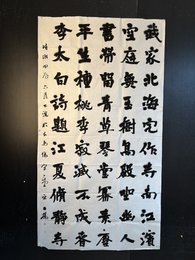 我家北海宅作寺南江濱
空庭無玉樹高殿坐幽人
書帶留青草琴堂冪素塵
平生種桃李寂滅不成春
李太白詩題江夏脩靜寺